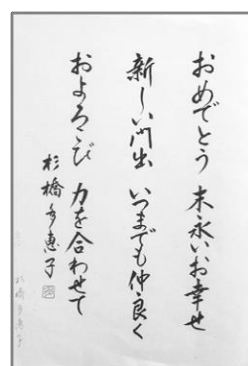 おめでとう 末永いお幸せ
新しい門出 いつまでも仲良く
およろこび 力を合わせて
杉橋多恵子
杉橋多恵子